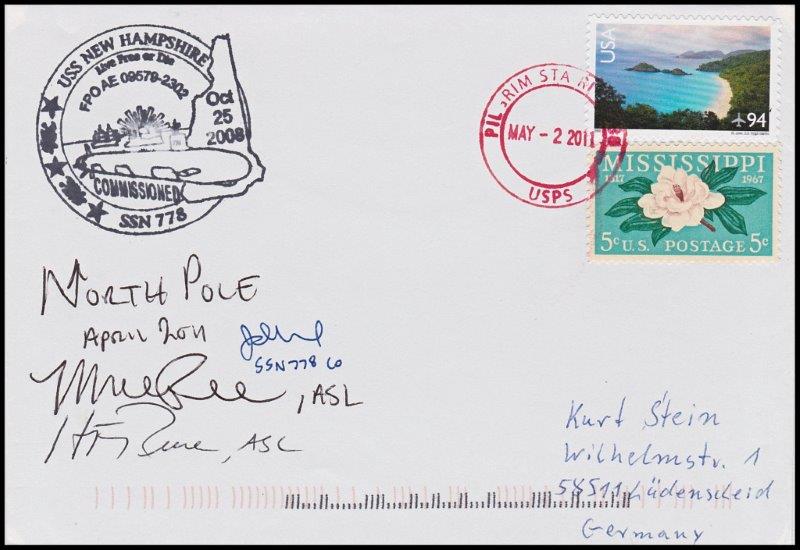 USS NEW HAMPSHIRE
Live Free or Die
FPO AE 09579-2302
Oct
25
2008
COMMISSIONED
SSN 778
PILGRIM STA
MAY - 2 2011
USPS
USA
94
MISSISSIPPI
1817 1967
5c U.S. POSTAGE 5c
NORTH POLE
APRIL 2011
SSN778 CO
, ASL
, ASL
Kurt Stein
Wilhelmstr. 1
58511 Lüdenscheid
Germany